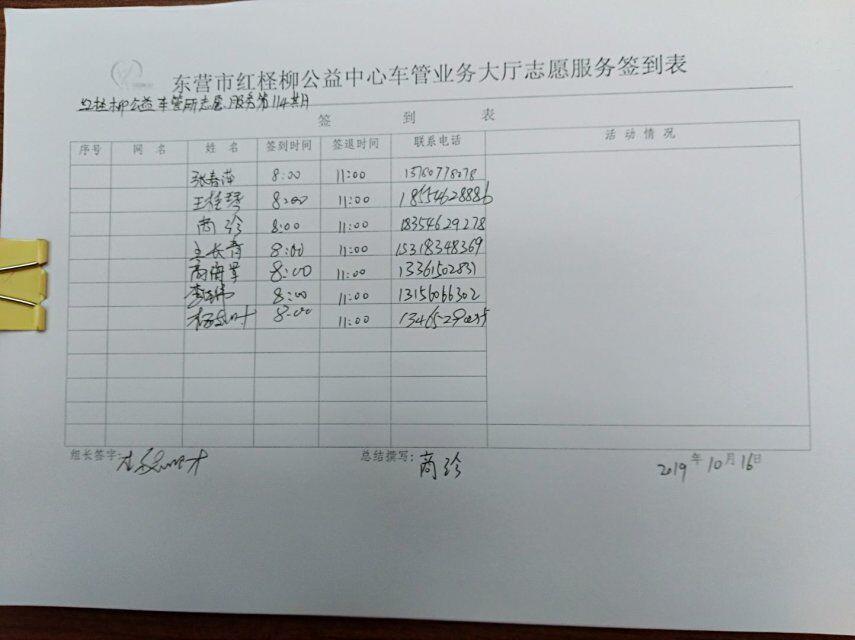 东营市红柽柳公益中心车管业务大厅志愿服务签到表
红柽柳公益车管所志愿服务第114期
签 到 表
序号 网 名 姓 名 签到时间 签退时间 联系电话 活动情况
张春萍 8:00 11:00
王桂琴 8:00 11:00 18554628886
商珍 8:00 11:00 18354629278
王长青 8:00 11:00 15318348369
商海军 8:00 11:00 13361502831
8:00 11:00 13156066302
8:00 11:00
组长签字:
总结撰写: 商珍
2019年10月16日